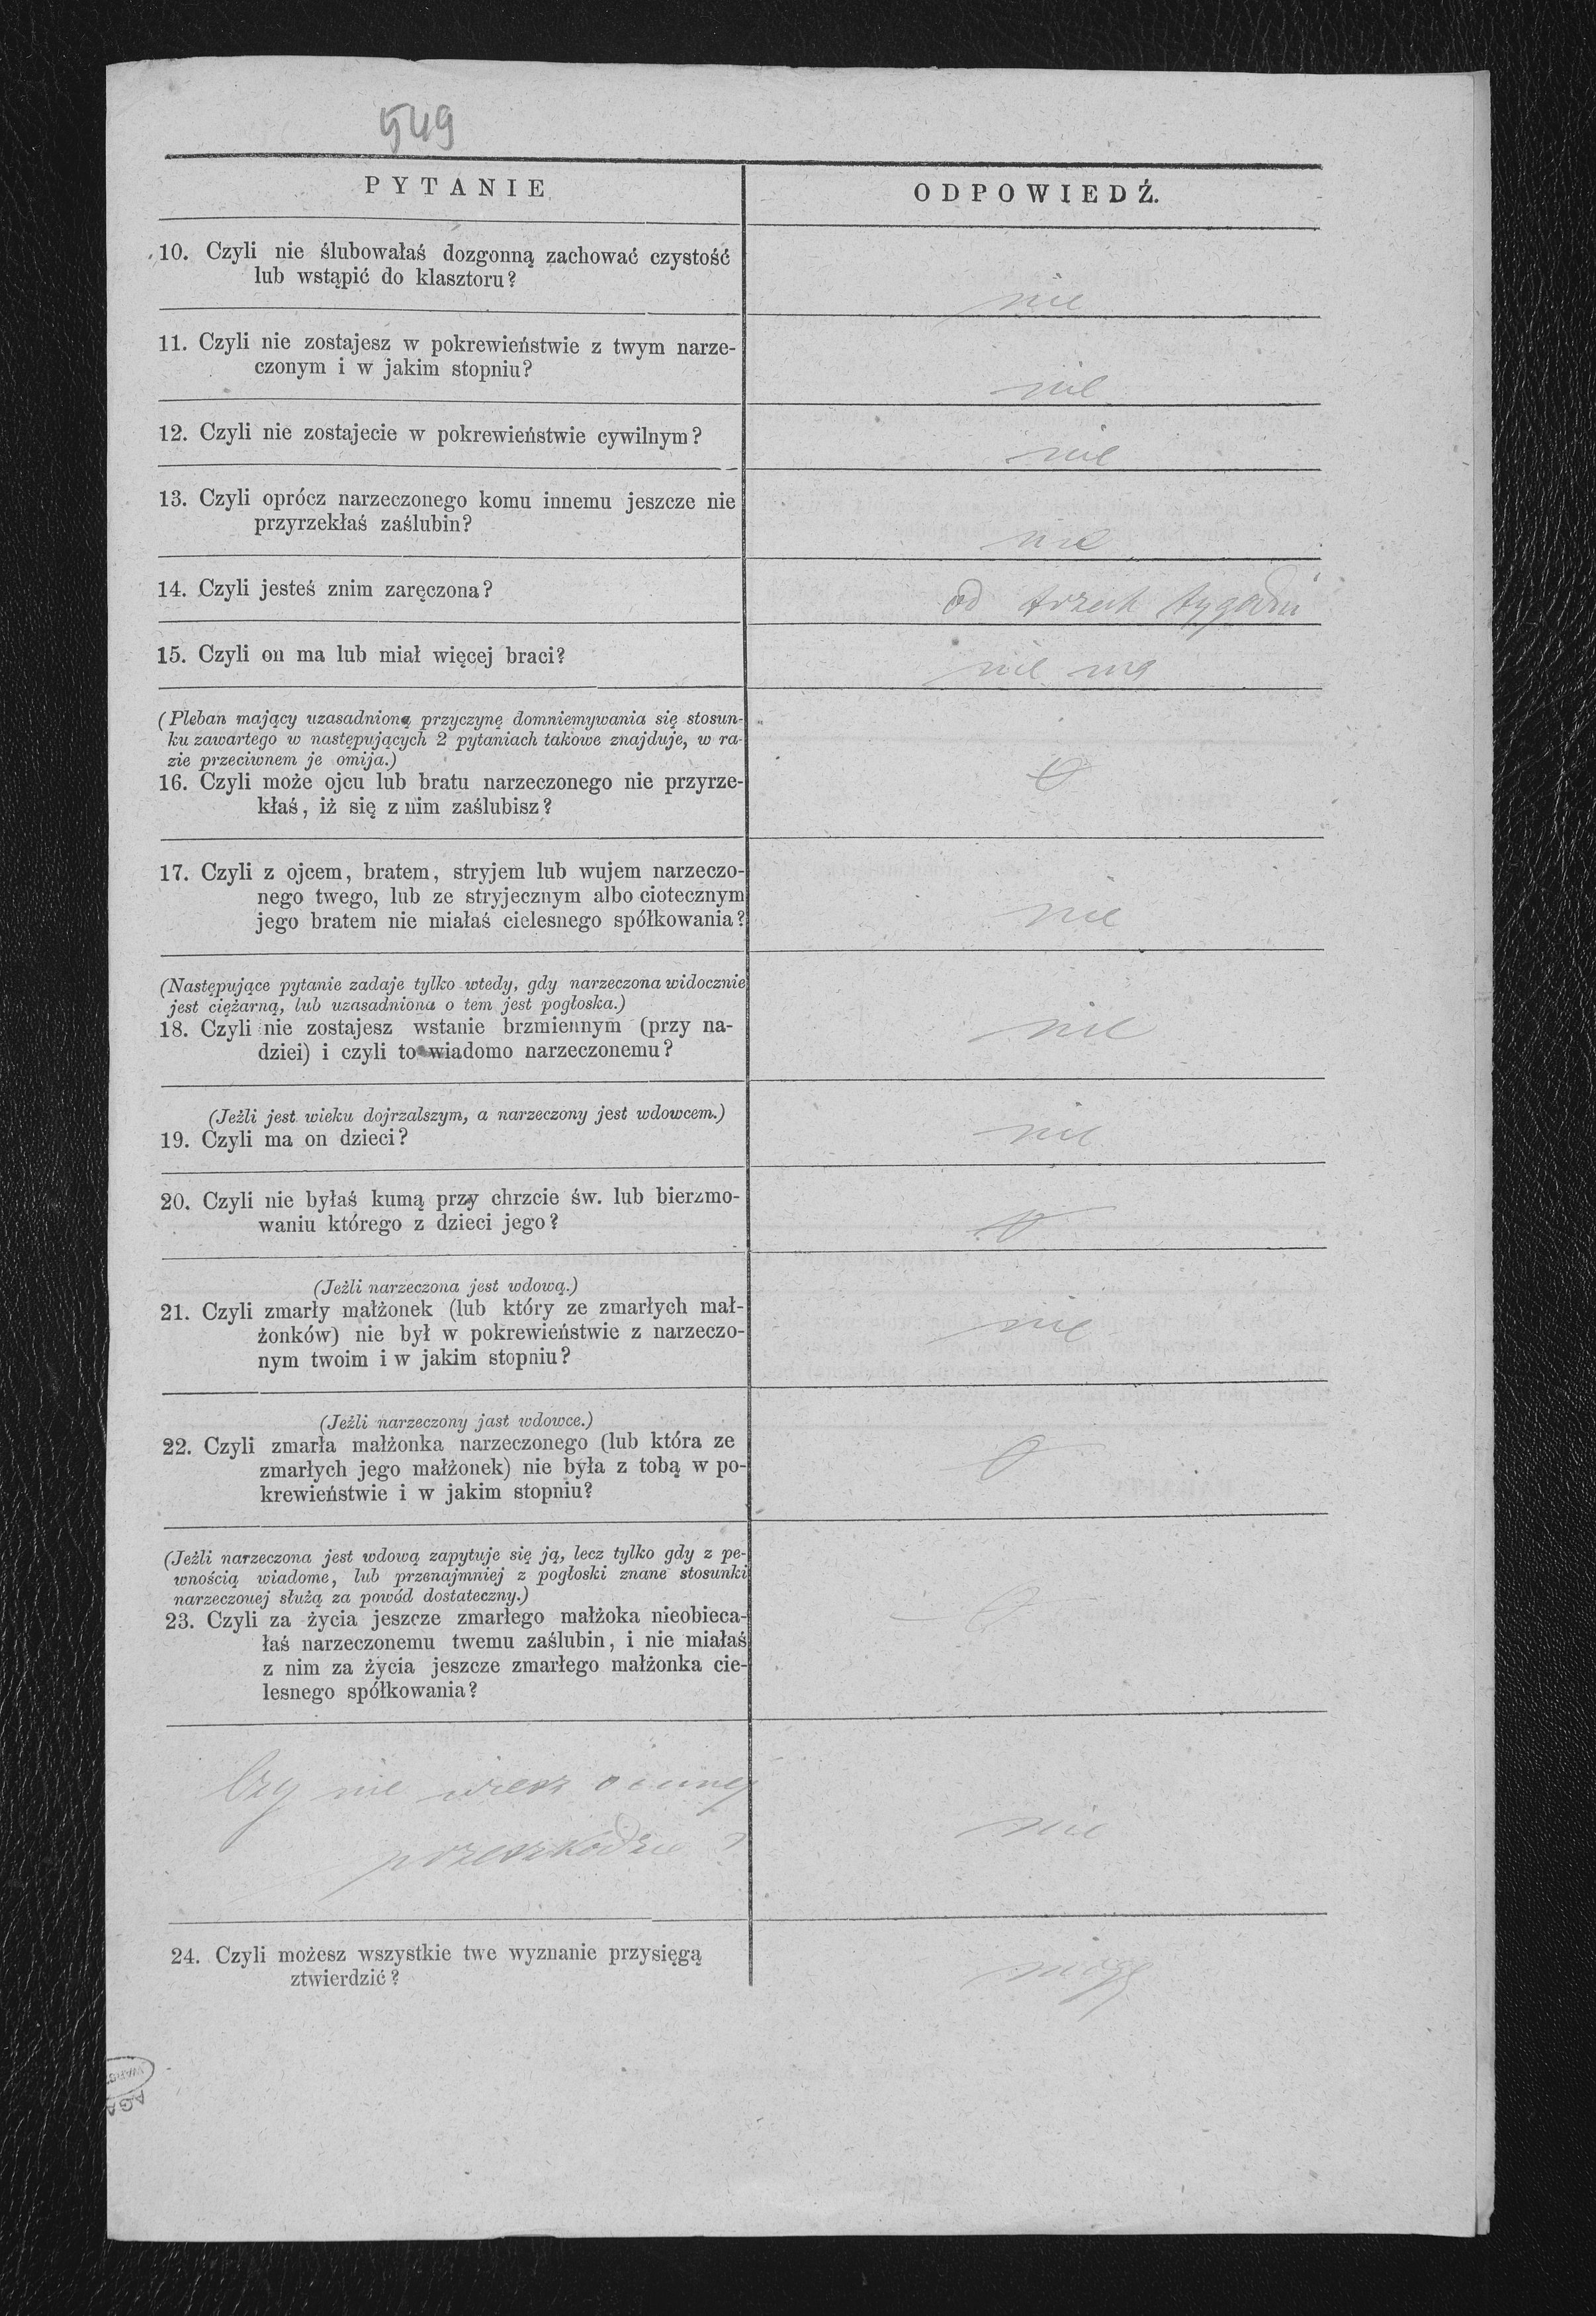 549
PYTANIE
ODPOWIEDŹ.
10. Czyli nie ślubowałaś dozgonną zachować czystość
lub wstąpić do klasztoru?
nie
11. Czyli nie zostajesz w pokrewieństwie z twym narze-
czonym i w jakim stopniu?
nie
12. Czyli nie zostajecie w pokrewieństwie cywilnym?
nie
13. Czyli oprócz narzeczonego komu innemu jeszcze nie
przyrzekłaś zaślubin?
nie
14. Czyli jesteś znim zaręczona?
od trzech tygodni
15. Czyli on ma lub miał więcej braci?
nie ma
(Pleban mający uzasadnioną przyczynę domniemywania się stosun-
ku zawartego w następujących 2 pytaniach takowe znajduje, w ra-
zie przeciwnem je omija.)
16. Czyli może ojcu lub bratu narzeczonego nie przyrze-
kłaś, iż się z nim zaślubisz?
0
17. Czyli z ojcem, bratem, stryjem lub wujem narzeczo-
nego twego, lub ze stryjecznym albo ciotecznym
jego bratem nie miałaś cielesnego spółkowania?
nie
(Następujące pytanie zadaje tylko wtedy, gdy narzeczona widocznie
jest ciężarną, lub uzasadniona o tem jest pogłoska.)
18. Czyli nie zostajesz wstanie brzmiennym (przy na-
dziei) i czyli to wiadomo narzeczonemu?
nie
(Jeżli jest wieku dojrzalszym, a narzeczony jest wdowcem.)
19. Czyli ma on dzieci?
nie
20. Czyli nie byłaś kumą przy chrzcie św. lub bierzmo-
waniu którego z dzieci jego?
0
(Jeżli narzeczona jest wdową.)
21. Czyli zmarły małżonek (lub który ze zmarłych mał-
żonków) nie był w pokrewieństwie z narzeczo-
nym twoim i w jakim stopniu?
nie
(Jeżli narzeczony jast wdowce.)
22. Czyli zmarła małżonka narzeczonego (lub która ze
zmarłych jego małżonek) nie była z tobą w po-
krewieństwie i w jakim stopniu?
0
(Jeżli narzeczona jest wdową zapytuje się ją, lecz tylko gdy z pe-
wnością wiadome, lub przenajmniej z pogłoski znane stosunki
narzeczouej służą za powód dostateczny.)
23. Czyli za życia jeszcze zmarłego małżoka nieobieca-
łaś narzeczonemu twemu zaślubin, i nie miałaś
z nim za życia jeszcze zmarłego małżonka cie-
lesnego spółkowania?
0
Czy nie wiesz o innej
przeszkodzie?
nie
24. Czyli możesz wszystkie twe wyznanie przysięgą
ztwierdzić?
mogę